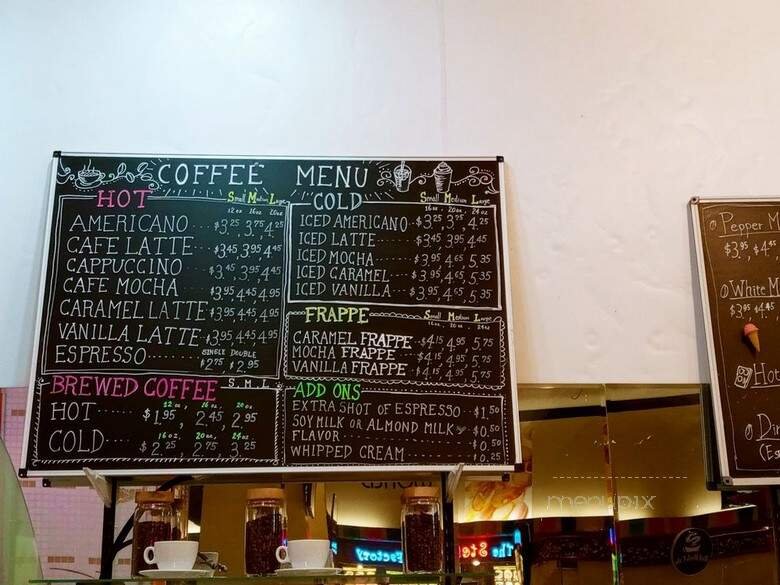 COFFEE MENU
HOT
Small Medium Large
12 oz 16oz 20oz
AMERICANO $3.25 3.75 4.25
CAFE LATTE $3.45 3.95 4.45
CAPPUCCINO $3.45 3.95 4.45
CAFE MOCHA $3.95 4.45 4.95
CARAMEL LATTE $3.95 4.45 4.95
VANILLA LATTE $3.95 4.45 4.95
ESPRESSO SINGLE DOUBLE
$2.75 $2.95
COLD
Small Medium Large
16 oz 20 oz 24 oz
ICED AMERICANO $3.25 3.75 4.25
ICED LATTE $3.45 3.95 4.45
ICED MOCHA $3.95 4.65 5.35
ICED CARAMEL $3.95 4.65 5.35
ICED VANILLA $3.95 4.65 5.35
FRAPPE
Small Medium Large
CARAMEL FRAPPE $4.15 4.95 5.75
MOCHA FRAPPE $4.15 4.95 5.75
VANILLA FRAPPE $4.15 4.95 5.75
BREWED COFFEE S M L
12 oz, 16 oz, 20 oz
HOT $1.95, 2.45, 2.95
16 oz, 20 oz, 24 oz
COLD $2.25 2.75 3.25
ADD ONS
EXTRA SHOT OF ESPRESSO $1.50
SOY MILK OR ALMOND MILK $0.50
FLAVOR $0.50
WHIPPED CREAM $0.25
Pepper M
$3.95, $4.
White M
$3.95 4.45
Hot
Dir
(Es
Factory
menupix